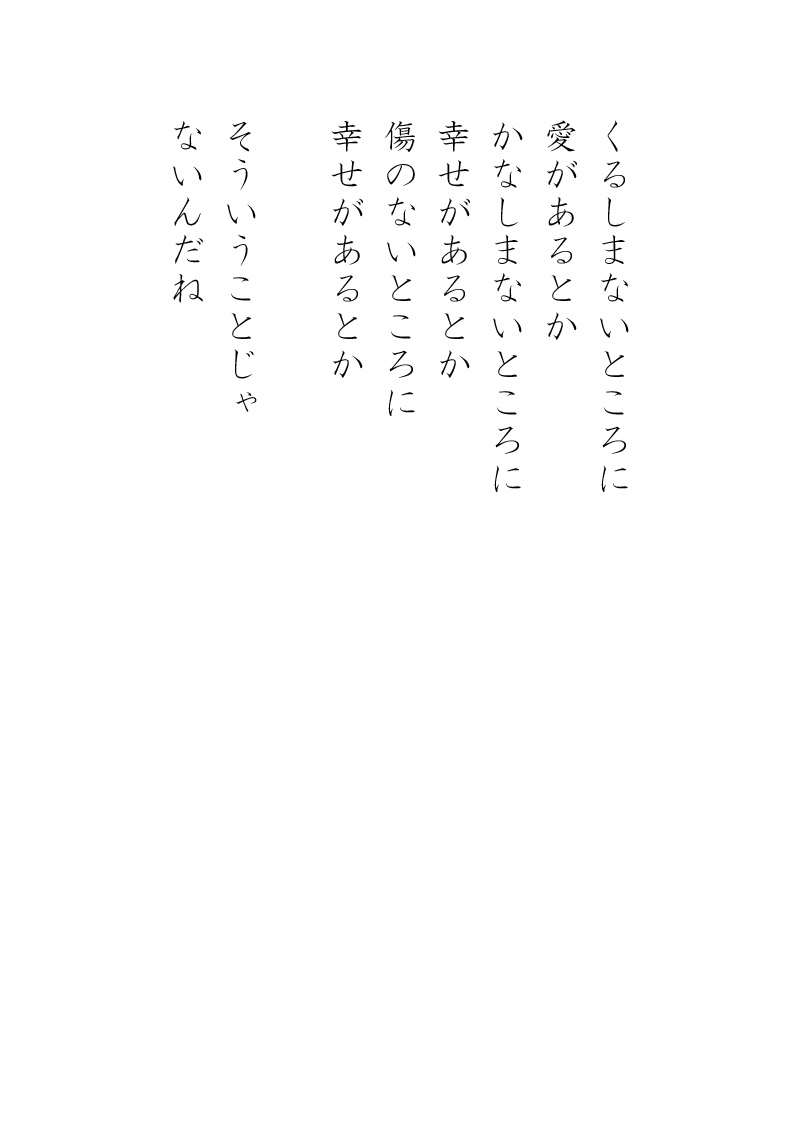 くるしまないところに
愛があるとか
かなしまないところに
幸せがあるとか
傷のないところに
幸せがあるとか
そういうことじゃ
ないんだね